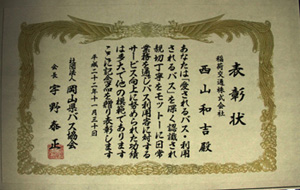 表彰状
稲荷交通株式会社
西山和吉殿
あなたは「愛されるバス・利用
されるバス」を深く認識され
親切丁寧をモットーに日常
業務を通じバス利用客に対する
サービス向上に努められた功績
は多大で他の模範であります
ここに記念品を贈り表彰します
平成二十二年十一月三十日
社団法人
岡山県バス協会
会長 宇野泰正